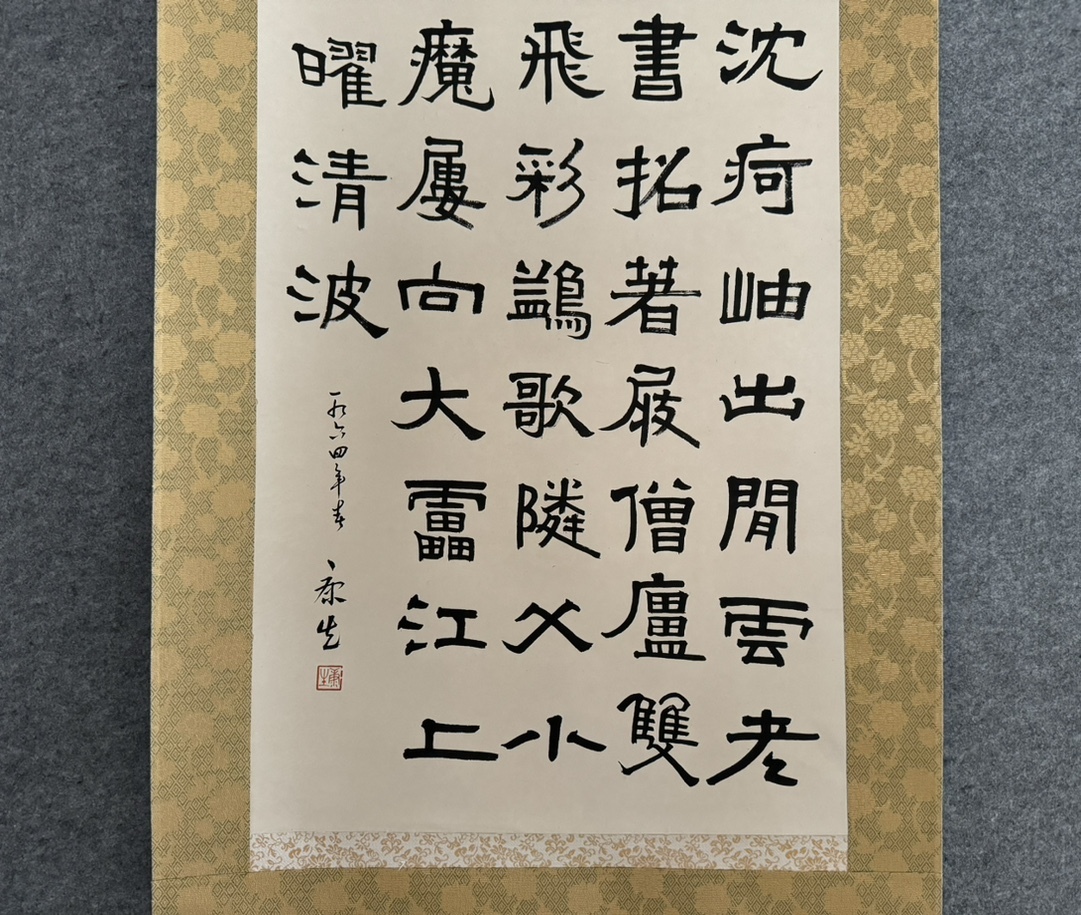 沈疴岫出閒雲老
書拓著屐僧廬雙
飛彩鷁歌隣父小
魔屢向大靁江上
曜清波
一九六四年春
康生
康生